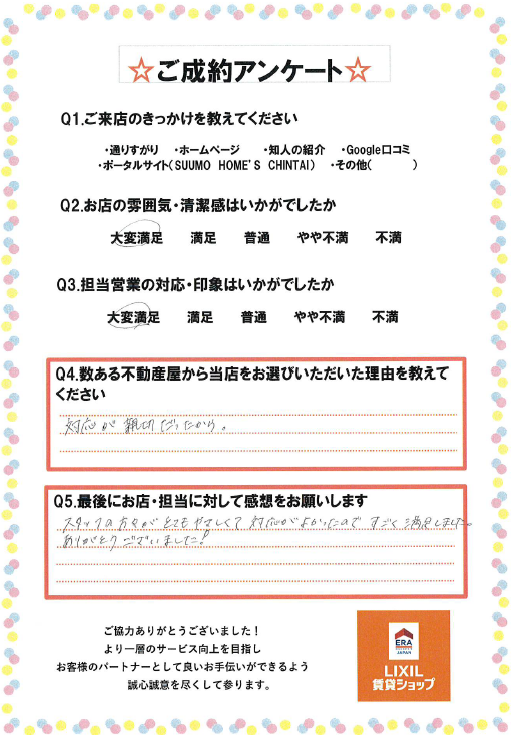 ☆ご成約アンケート☆
Q1.ご来店のきっかけを教えてください
・通りすがり ・ホームページ ・知人の紹介 ・Google口コミ
・ポータルサイト(SUUMO HOME'S CHINTAI) ・その他( )
Q2.お店の雰囲気・清潔感はいかがでしたか
大変満足 満足 普通 やや不満 不満
Q3.担当営業の対応・印象はいかがでしたか
大変満足 満足 普通 やや不満 不満
Q4.数ある不動産屋から当店をお選びいただいた理由を教えて
ください
対応が親切だったから。
Q5.最後にお店・担当に対して感想をお願いします
スタッフの方々がとてもやさしくて対応がよかったのですごく満足しました。
ありがとうございました!
ご協力ありがとうございました!
より一層のサービス向上を目指し
お客様のパートナーとして良いお手伝いができるよう
誠心誠意を尽くして参ります。
ERA
JAPAN
LIXIL
賃貸ショップ